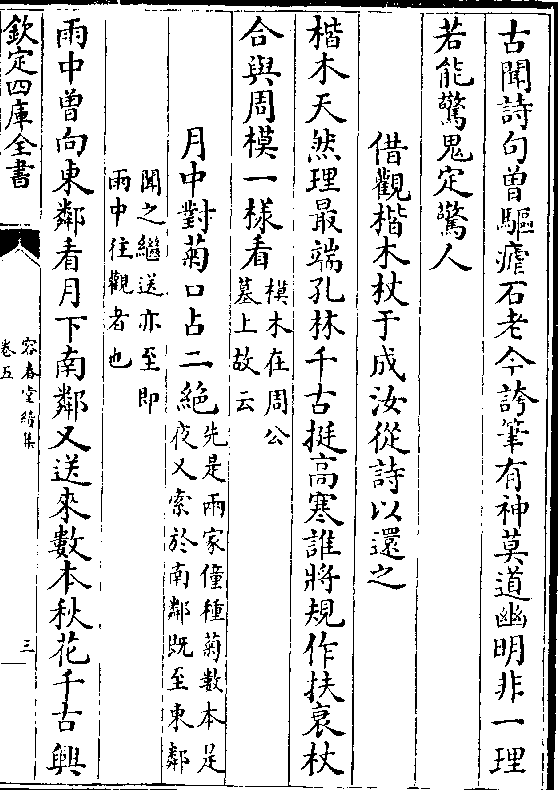 古聞詩句曾驅瘧石老今誇筆有神莫道幽明非一理
若能驚鬼定驚人
借觀楷木杖于成汝從詩以還之
楷木天然理最端孔林千古挺高寒誰將規作扶衰杖
合與周模一樣看
模木在周公
墓上故云
月中對菊口占二絕
先是雨家僮種菊數本足
夜又索於南鄰既至東鄰
聞之繼送亦至即
雨中往觀者也
雨中曾向東鄰看月下南鄰又送來數本秋花千古興
欽定四庫全書
容春堂續集
卷五
三